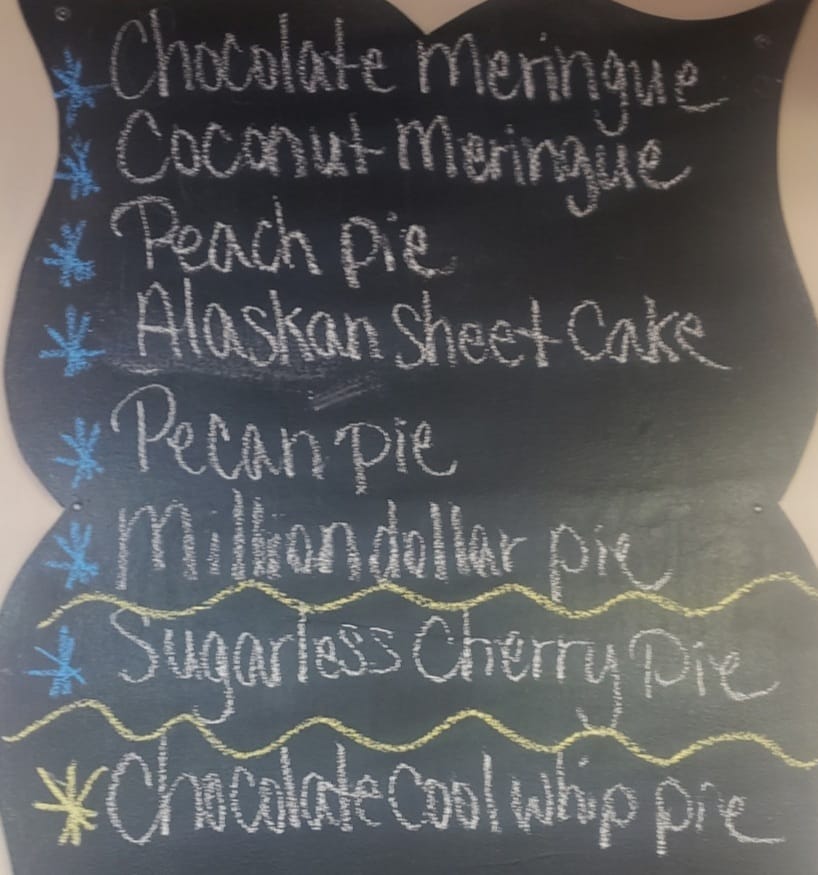 Chocolate Meringue
Coconut Meringue
Peach pie
Alaskan Sheet Cake
Pecan pie
Million dollar pie
Sugarless Cherry Pie
Chocolate Cool whip pie